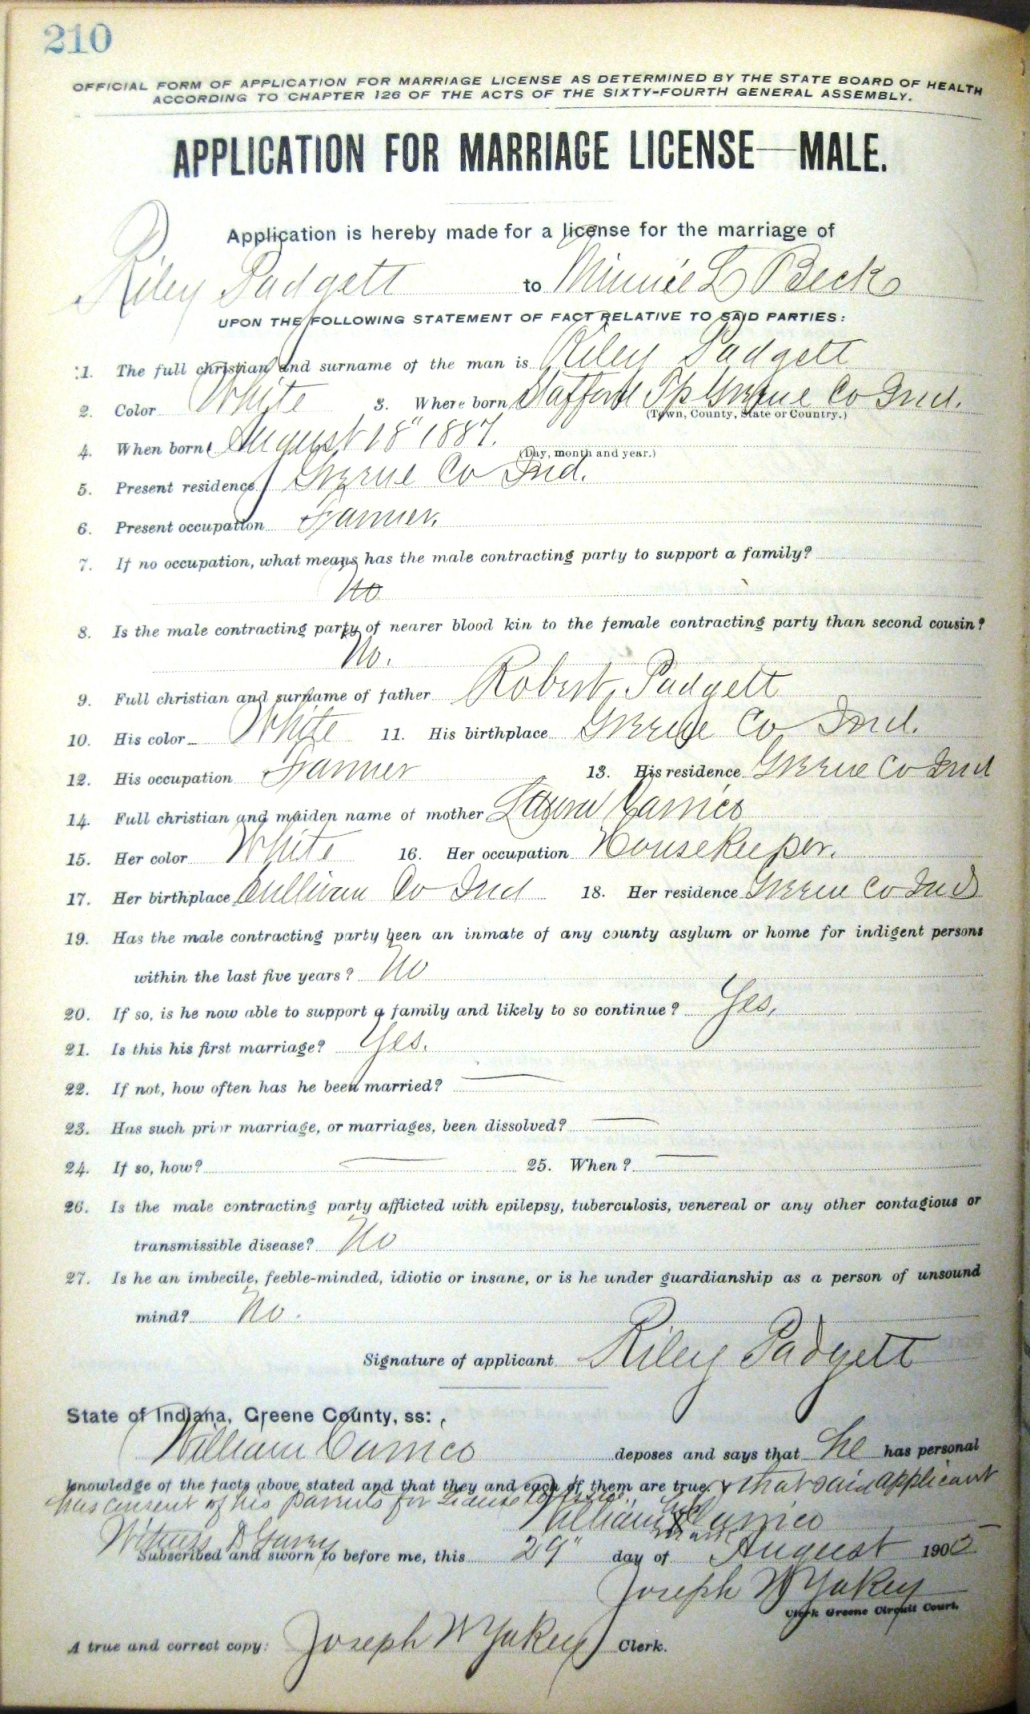 210
OFFICIAL FORM OF APPLICATION FOR MARRIAGE LICENSE AS DETERMINED BY THE STATE BOARD OF HEALTH
ACCORDING TO CHAPTER 126 OF THE ACTS OF THE SIXTY-FOURTH GENERAL ASSEMBLY.
APPLICATION FOR MARRIAGE LICENSE—MALE.
Application is hereby made for a license for the marriage of
Riley Padgett to Minnie L Beck
UPON THE FOLLOWING STATEMENT OF FACT RELATIVE TO SAID PARTIES:
1. The full christian and surname of the man is Riley Padgett
2. Color White 3. Where born Stafford Tp Greene Co Ind.
(Town, County, State or Country.)
4. When born August 18" 1887.
(Day, month and year.)
5. Present residence Greene Co Ind.
6. Present occupation Farmer.
7. If no occupation, what means has the male contracting party to support a family?
No
8. Is the male contracting party of nearer blood kin to the female contracting party than second cousin?
No.
9. Full christian and surname of father Robert Padgett
10. His color White 11. His birthplace Greene Co Ind.
12. His occupation Farmer 13. His residence Greene Co Ind
14. Full christian and maiden name of mother Laura Carrico
15. Her color White 16. Her occupation Housekeeper.
17. Her birthplace Sullivan Co Ind 18. Her residence Greene Co Ind
19. Has the male contracting party been an inmate of any county asylum or home for indigent persons
within the last five years? No
20. If so, is he now able to support a family and likely to so continue? Yes.
21. Is this his first marriage? Yes.
22. If not, how often has he been married? —
23. Has such prior marriage, or marriages, been dissolved? —
24. If so, how? — 25. When? —
26. Is the male contracting party afflicted with epilepsy, tuberculosis, venereal or any other contagious or
transmissible disease? No
27. Is he an imbecile, feeble-minded, idiotic or insane, or is he under guardianship as a person of unsound
mind? No.
Signature of applicant Riley Padgett
State of Indiana, Greene County, ss:
William Carrico deposes and says that he has personal
knowledge of the facts above stated and that they and each of them are true. & that said applicant
has consent of his parents for License to issue.
William his X mark Carrico
Witness D
Subscribed and sworn to before me, this 29" day of August 1905
Joseph W Yakey
Clerk Greene Circuit Court.
A true and correct copy: Joseph W Yakey Clerk.